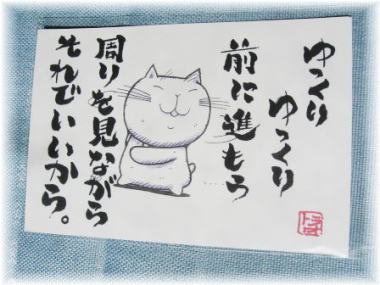 ゆっくり
ゆっくり
前に進もう
周りを見ながら
それでいいから。